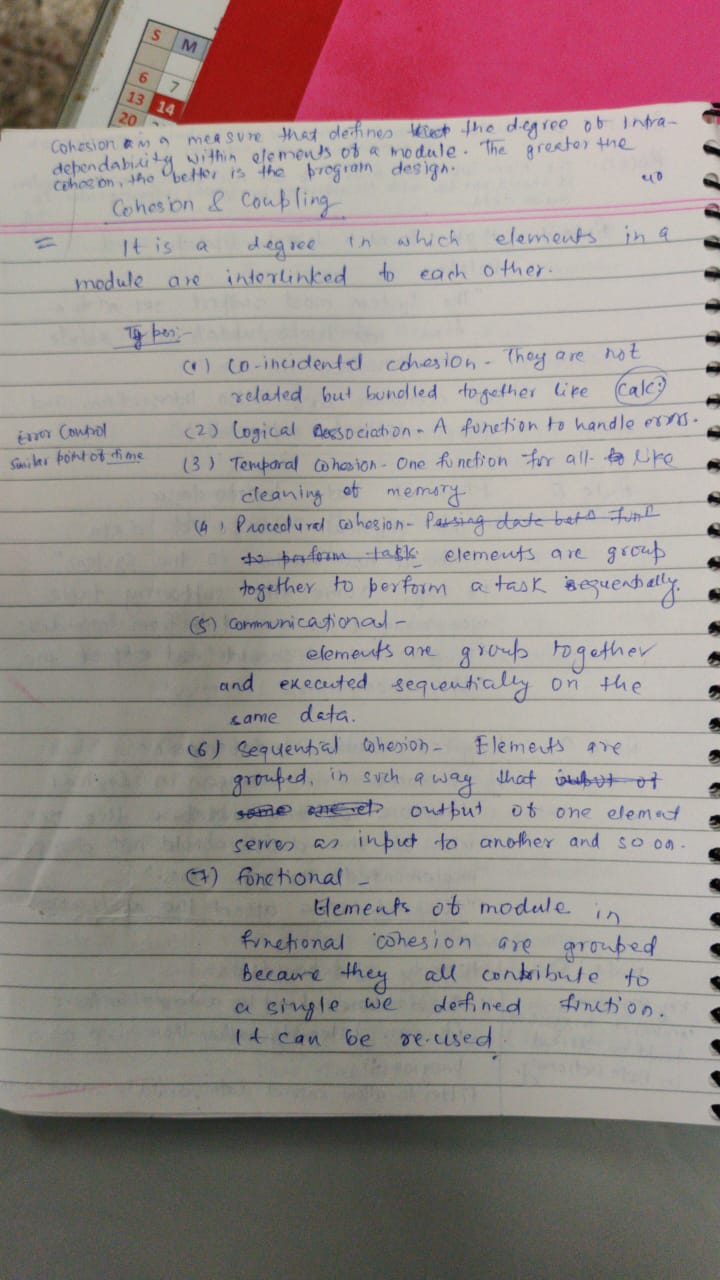 S M
6 7
13 14
20
Cohesion is a measure that defines the degree of Intra-
dependability within elements of a module. The greater the
cohesion, the better is the program design.
Cohesion & Coupling
= It is a degree in which elements in a
module are interlinked to each other.
Types:-
(1) Co-incidental cohesion - They are not
related but bundled together like Calc:
Error Control (2) Logical Association - A function to handle errors.
Similar point of time (3) Temporal cohesion - One function for all like
cleaning of memory
(4) Procedural cohesion - Passing data betn funn
to perform task elements are group
together to perform a task sequentially.
(5) Communicational -
elements are group together
and executed sequentially on the
same data.
(6) Sequential Cohesion - Elements are
grouped, in such a way that output of
some output of one element
serves as input to another and so on.
(7) Functional -
Elements of module in
functional cohesion are grouped
because they all contribute to
a single we defined function.
It can be re-used.